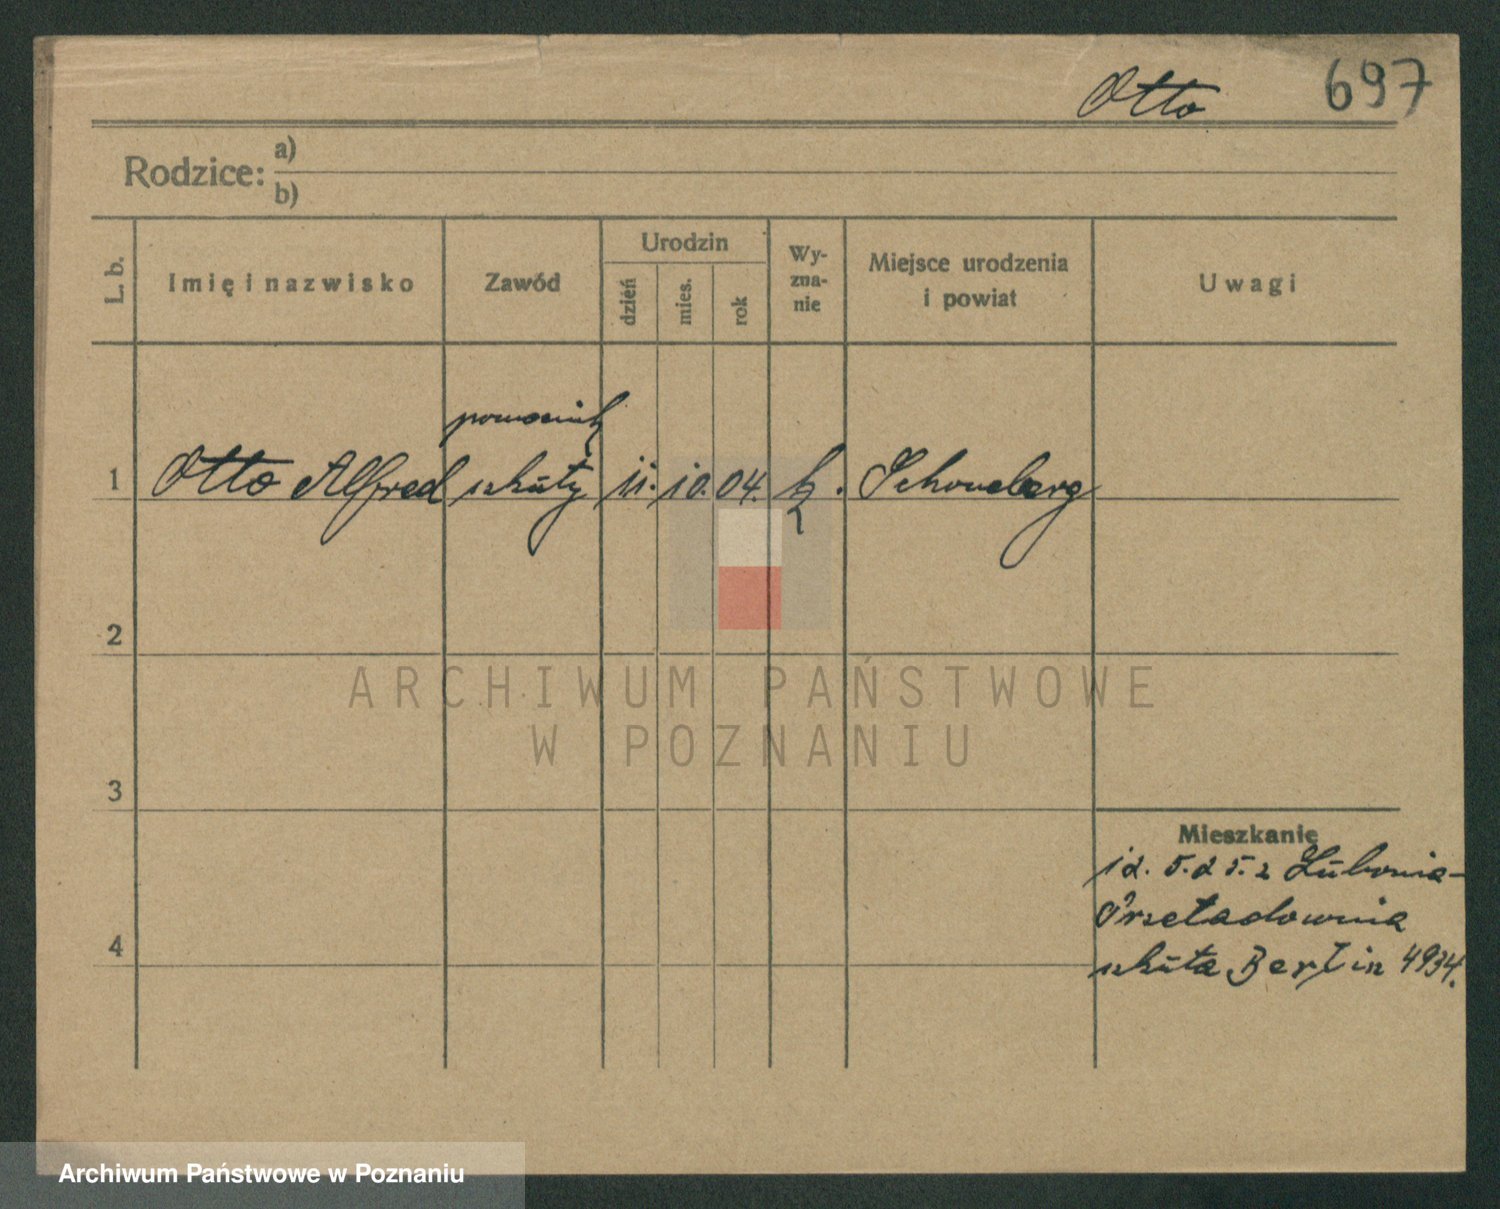 Otto 697
Rodzice: a)
b)
L. b.
Imię i nazwisko
Zawód
Urodzin
dzień
mies.
rok
Wy-
zna-
nie
Miejsce urodzenia
i powiat
Uwagi
pomocnik
1 Otto Alfred szkuty 11. 10. 04. k. Schoneberg
2
3
4
Mieszkanie
5.
Lubonia-
Przeładownia
szkuta Berlin 4934.
ARCHIWUM PAŃSTWOWE
W POZNANIU
Archiwum Państwowe w Poznaniu